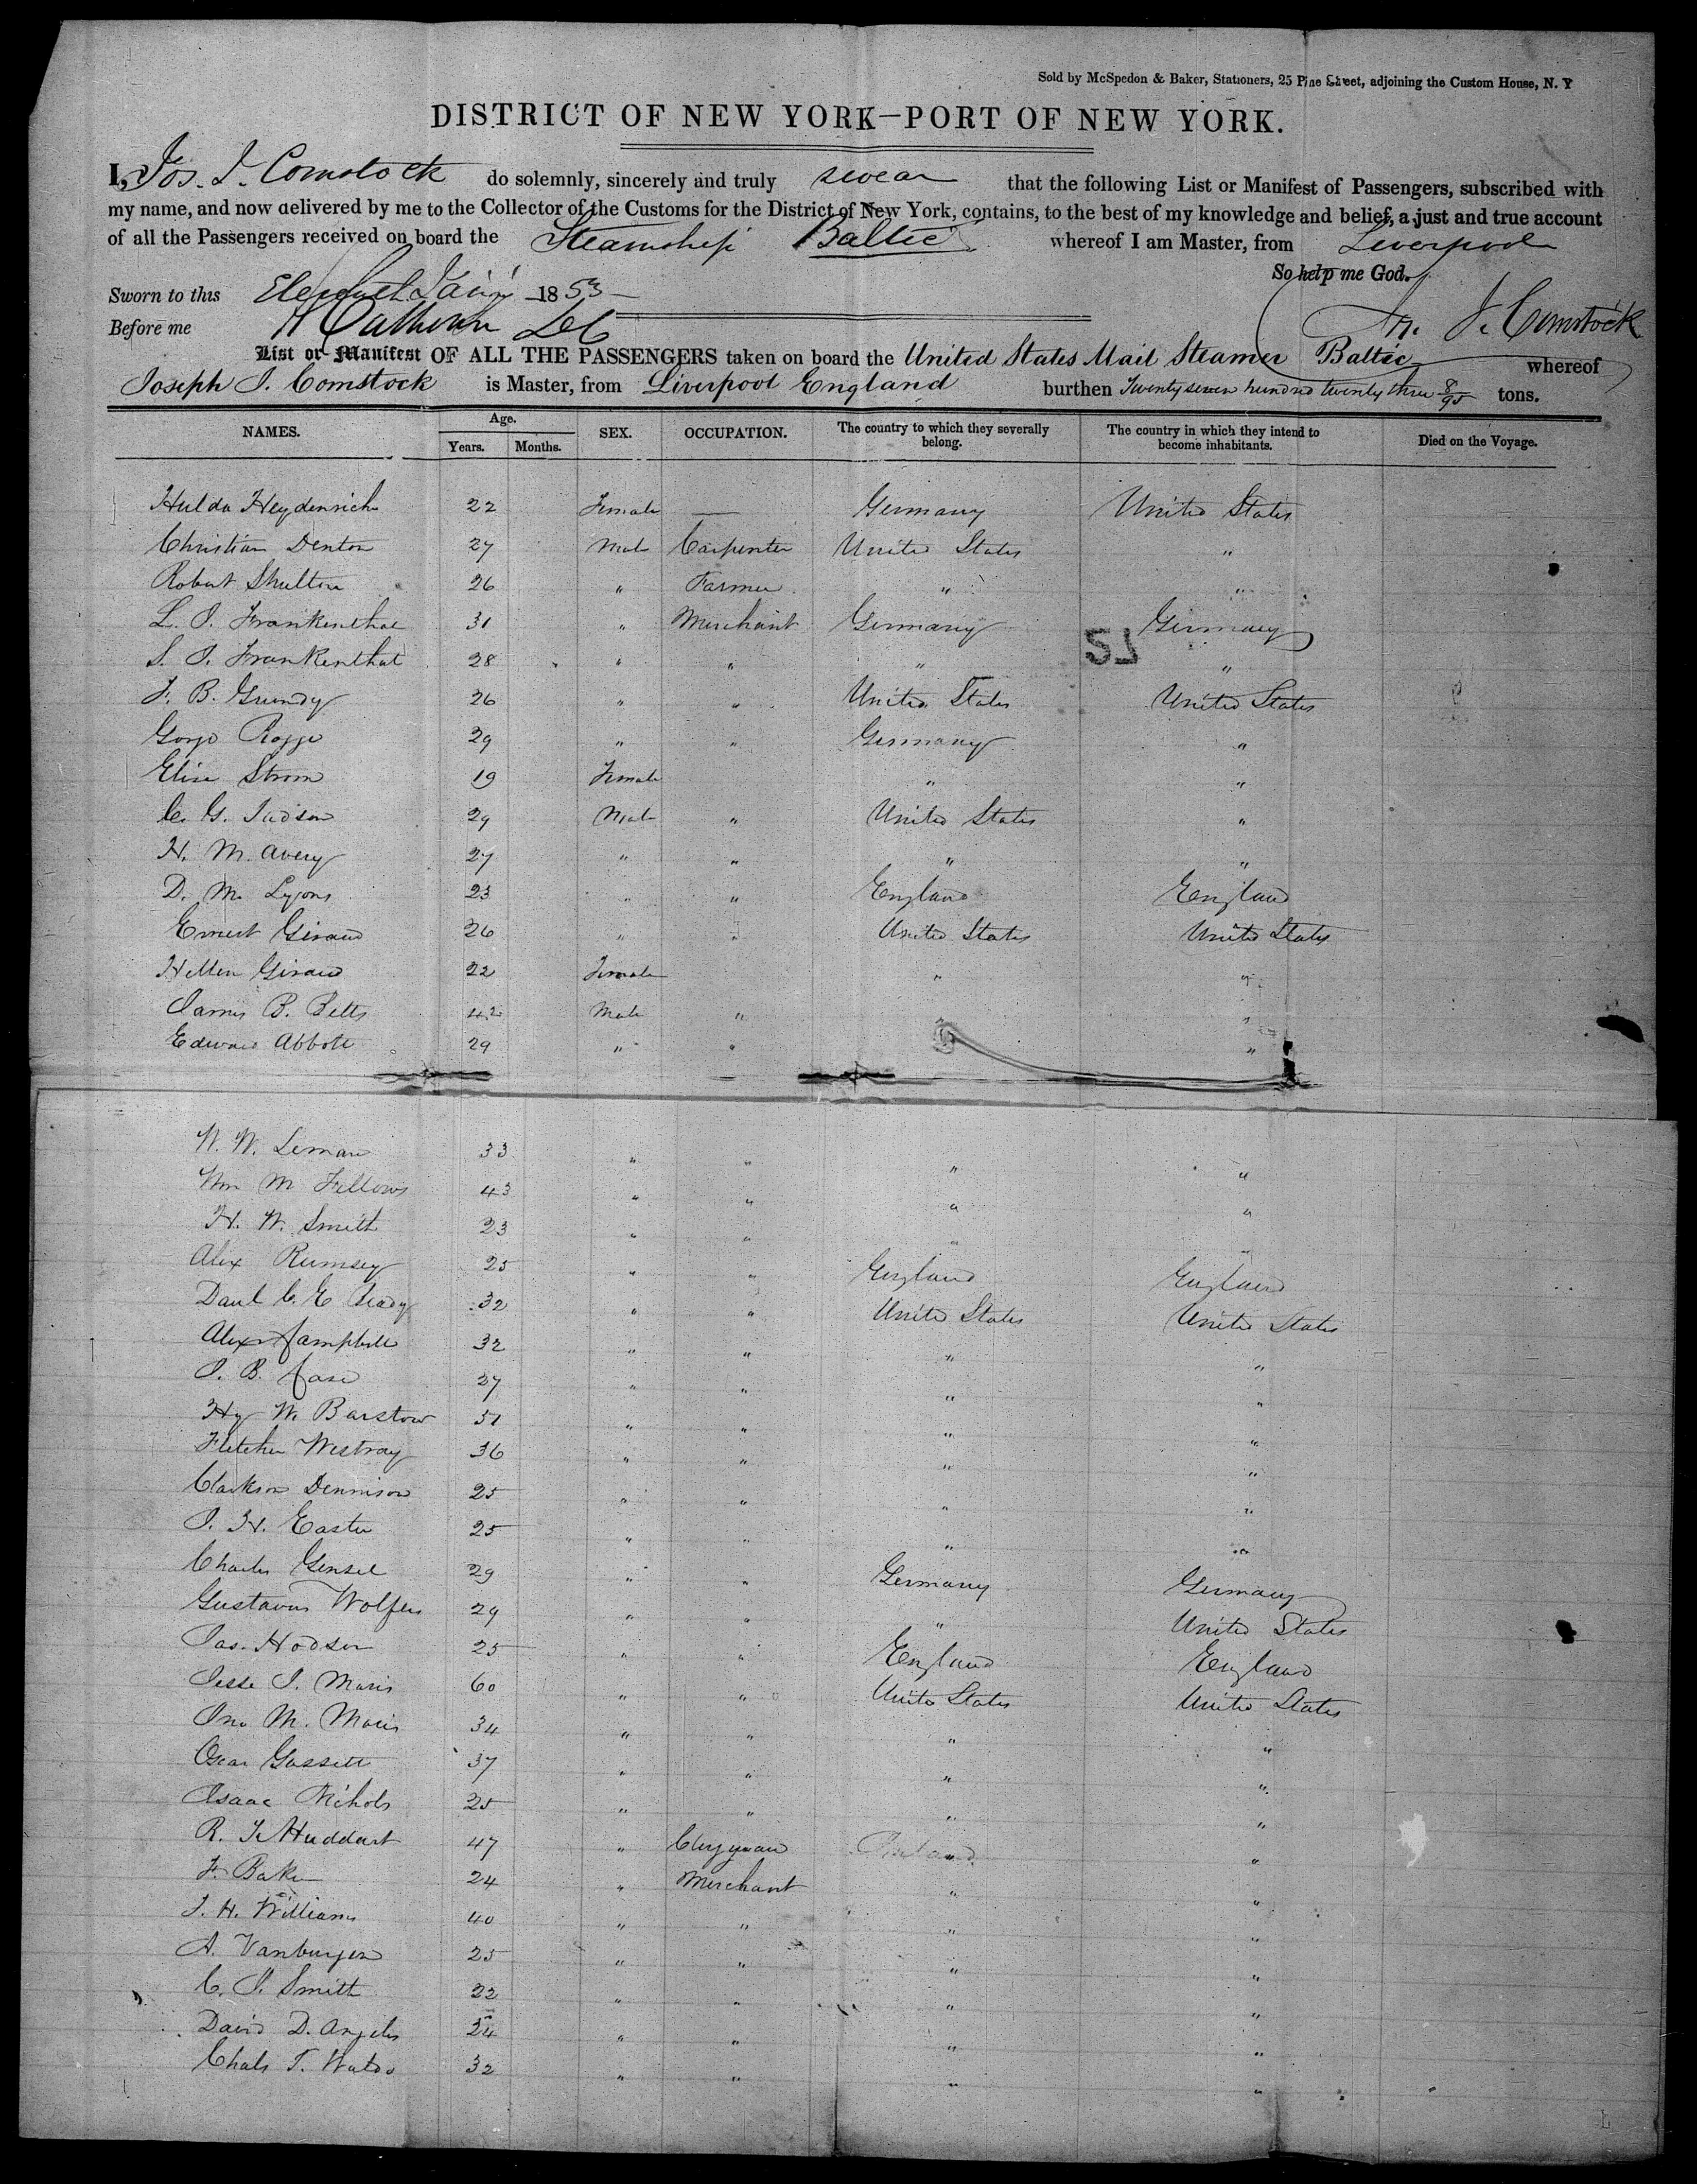 Sold by McSpedon & Baker, Stationers, 25 Pine Street, adjoining the Custom House, N. Y
DISTRICT OF NEW YORK—PORT OF NEW YORK.
I, Jos. J. Comstock do solemnly, sincerely and truly swear that the following List or Manifest of Passengers, subscribed with
my name, and now delivered by me to the Collector of the Customs for the District of New York, contains, to the best of my knowledge and belief, a just and true account
of all the Passengers received on board the Steamship Baltic whereof I am Master, from Liverpool
So help me God.
Sworn to this 1853
Before me
J. Comstock
List or Manifest OF ALL THE PASSENGERS taken on board the United States Mail Steamer Baltic whereof
Joseph J. Comstock is Master, from Liverpool England burthen Twenty seven hundred twenty three 8/95 tons.
NAMES. Age. Years. Months. SEX. OCCUPATION. The country to which they severally belong. The country in which they intend to become inhabitants. Died on the Voyage.
Hulda Heydenrich 22 Female — Germany United States
Christian Denton 27 Male Carpenter United States "
Robert Shulton 26 " Farmer " "
L. J. Frankenthal 31 " Merchant Germany Germany
S. J. Frankenthal 28 " " " "
F. B. Grundy 26 " " United States United States
Rogge 29 " " Germany "
Elise Strom 19 Female " "
C. G. Judson 29 Male " United States "
H. M. Avery 27 " " " "
D. M. Lyons 23 " " England England
Ernest Giraud 26 " " United States United States
Hellen Giraud 22 Female " "
James B. Betts 42 Male " " "
Edward Abbott 29 " " "
W. W. Leman 33 " " " "
Wm M Fellows 43 " " " "
H. W. Smith 23 " " " "
Alex Rumsey 25 " " England England
Danl C. E 32 " " United States United States
Alexr Campbell 32 " " " "
J. B. Case 37 " " " "
Hy W. Barstow 51 " " " "
Fletcher Westray 36 " " " "
Clarkson Dennison 25 " " " "
J. H. Easter 25 " " " "
Charles Gensel 29 " " Germany Germany
Gustavus Wolfers 29 " " " United States
Jas. Hodson 25 " " England England
Jesse J. Maris 60 " " United States United States
Jno M. Maris 34 " " " "
Oscar Gassett 37 " " " "
Isaac Nichols 25 " " " "
R. T. Huddart 47 " Clergyman " "
F. Baker 24 " Merchant " "
J. H. Williams 40 " " " "
A. Vanbuyen 25 " " " "
C. J. Smith 22 " " " "
David D. Angelis 24 " " " "
Chals T. 32 " " " "